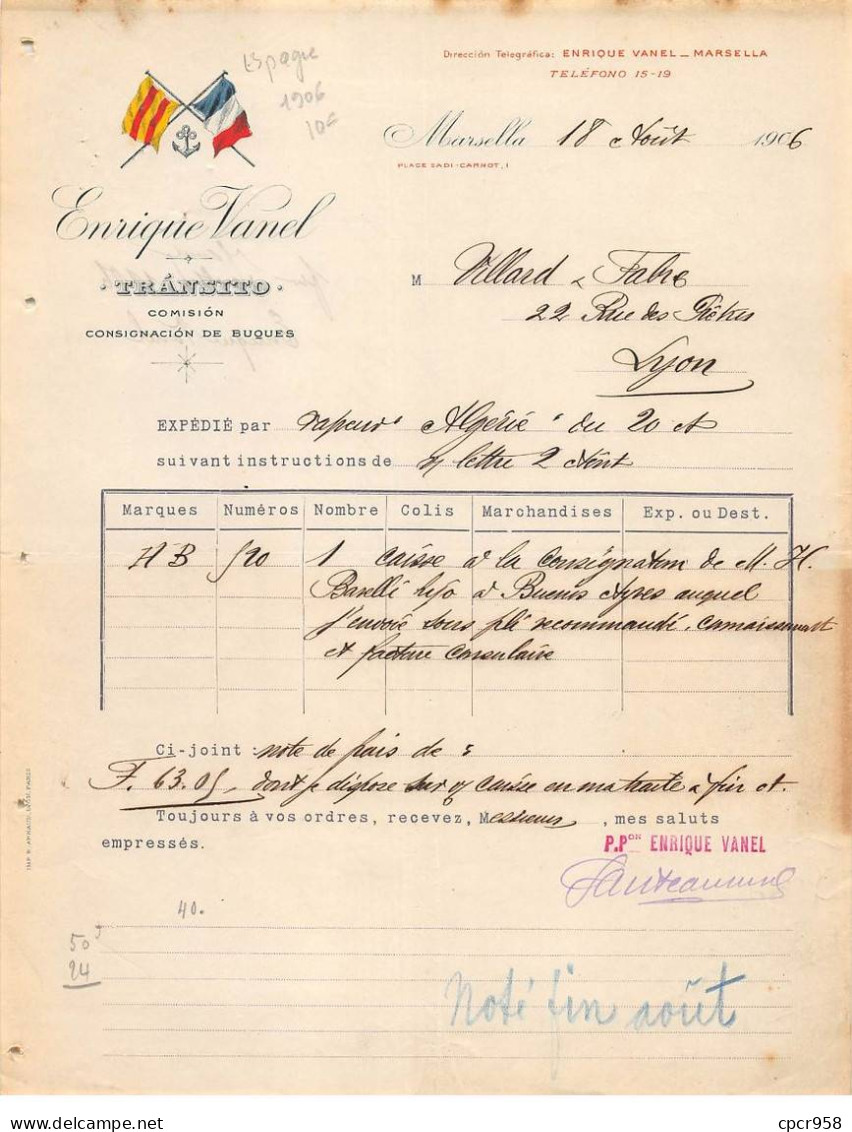 Dirección Telegráfica: ENRIQUE VANEL _ MARSELLA
TELÉFONO 15-19
Espagne
1906
10€
Marsella 18 Août 1906
PLACE SADI-CARNOT, 1
Enrique Vanel
· TRÁNSITO ·
COMISIÓN
CONSIGNACIÓN DE BUQUES
M Villard & Fabre
22 Rue des
Lyon
EXPÉDIÉ par vapeur "Algérie" du 20 ct
suivant instructions de lettre 2 Août
Marques Numéros Nombre Colis Marchandises Exp. ou Dest.
HB 520 1 caisse à la consignation de M. H.
Baselli à Buenos Ayres auquel
j'envoie sous pli recommandé, connaissement
et facture consulaire
Ci-joint : note de frais de :
F. 63.05, dont je dispose sur caisse en ma traite à fin ct.
Toujours à vos ordres, recevez, Messieurs, mes saluts
empressés.
P.Pon ENRIQUE VANEL
40.
50
24
Noté fin août
cpcr958